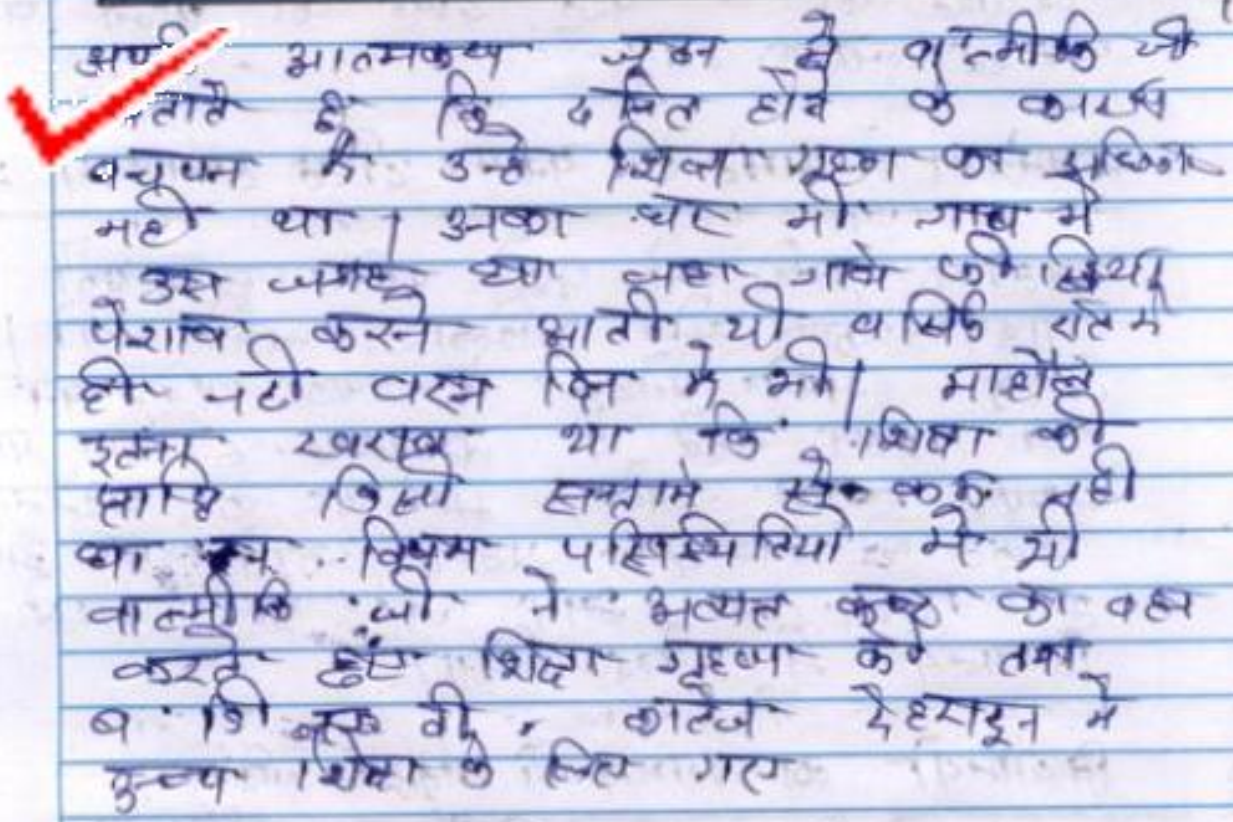 आत्मकथ्य जूठन में वाल्मीकि जी
बताते हैं कि दलित होने के कारण
बचपन में उन्हें शिक्षा ग्रहण का अधिकार
नही था । उनका घर भी गाव में
उस जगह था जहा गांव की स्त्रिया
पेशाब करने आती थी व सिर्फ रात में
ही नही वरन दिन में भी । माहौल
इतना खराब था कि शिक्षा की
प्राप्ति किसी से कम नही
था इन विषम परिस्थितियों में भी
वाल्मीकि जी ने अत्यंत कष्ट का वहन
करते हुए शिक्षा ग्रहण की तथा
कालेज देहरादून में
उच्च शिक्षा के लिए गए